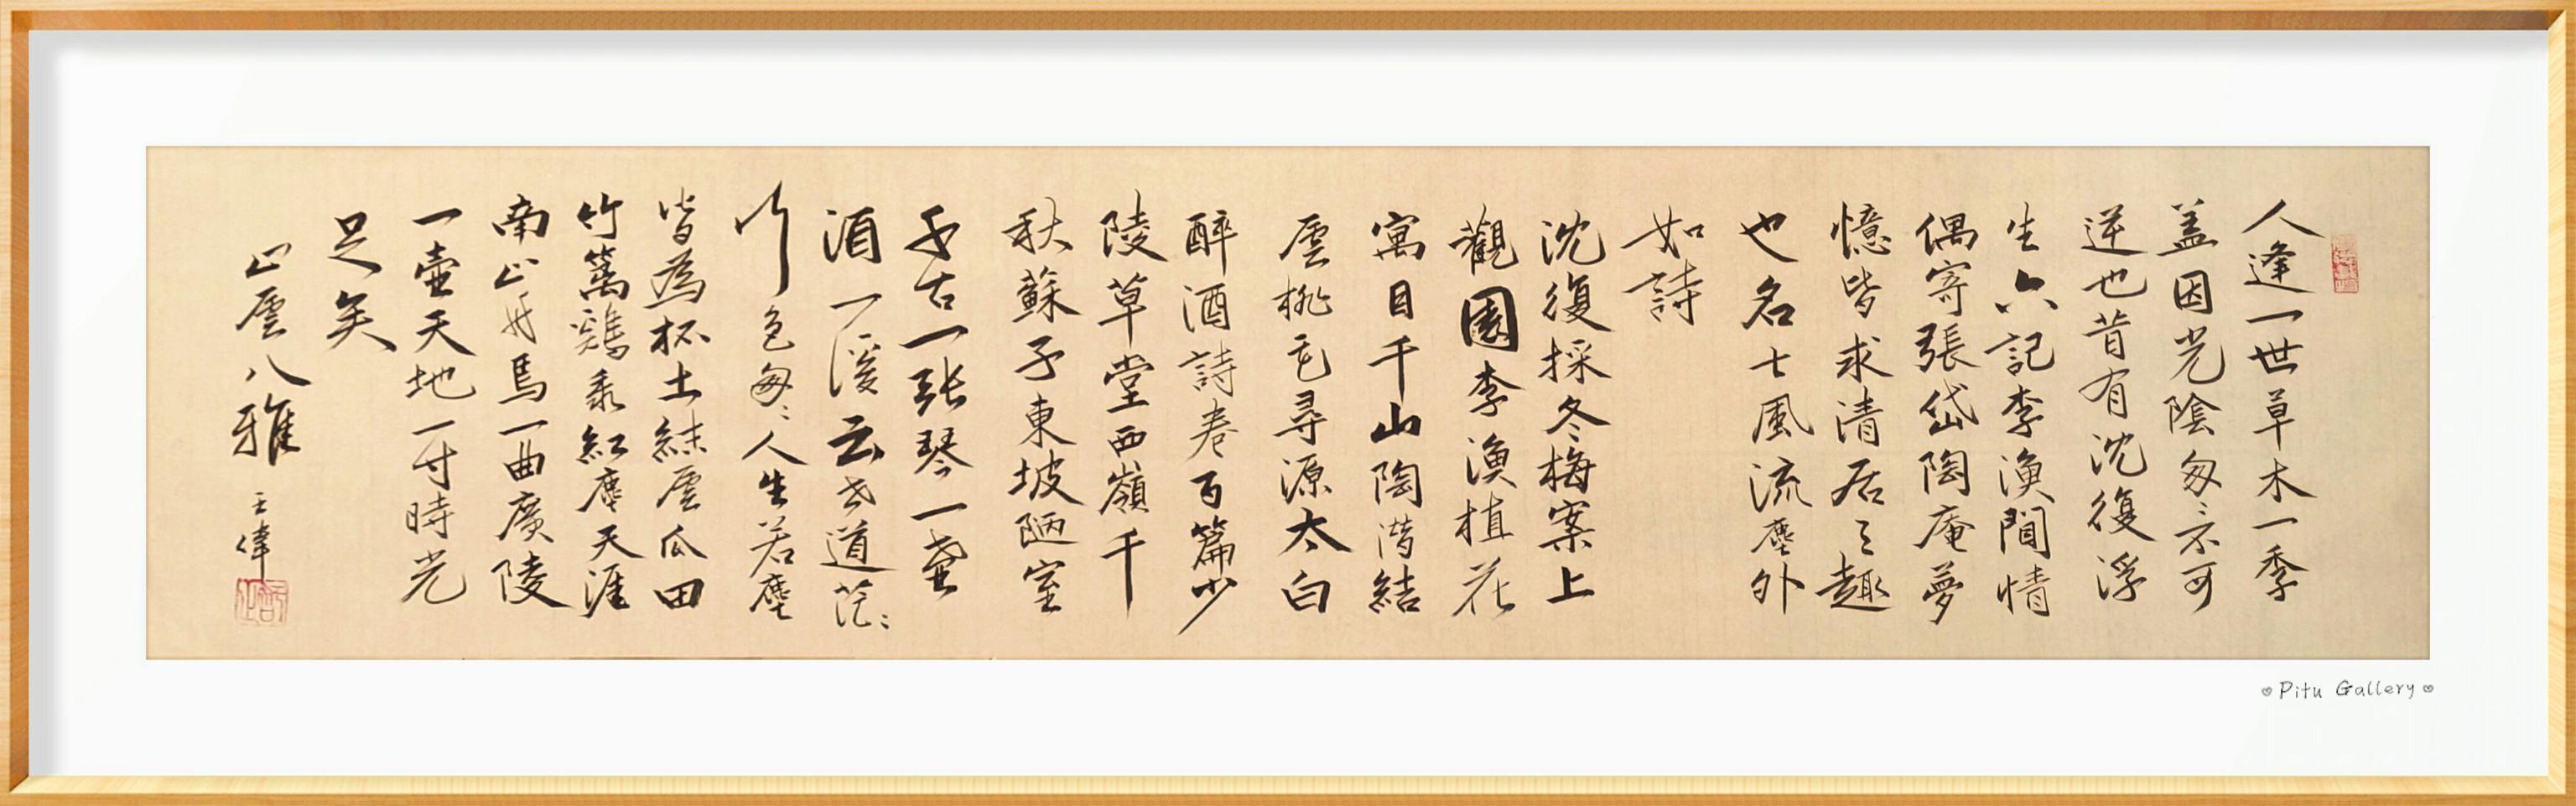 人逢一世草木一季
盖因光陰匆〻不可
逆也昔有沈復浮
生六記李漁閒情
偶寄張岱陶庵夢
憶皆求清居之趣
也名士風流塵外
如詩
沈復採冬梅案上
觀園李漁植花
寓目千山陶潛結
廬桃花尋源太白
醉酒詩卷百篇少
陵草堂西嶺千
秋蘇子東坡陋室
千古一张琴一壶
酒一溪云古道茫〻
行色匆〻人生若塵
皆為杯土結廬瓜田
竹篱鷄黍紅塵天涯
南山馬一曲廣陵
一壷天地一寸時光
足矣
山八雅
王偉
Pitu Gallery